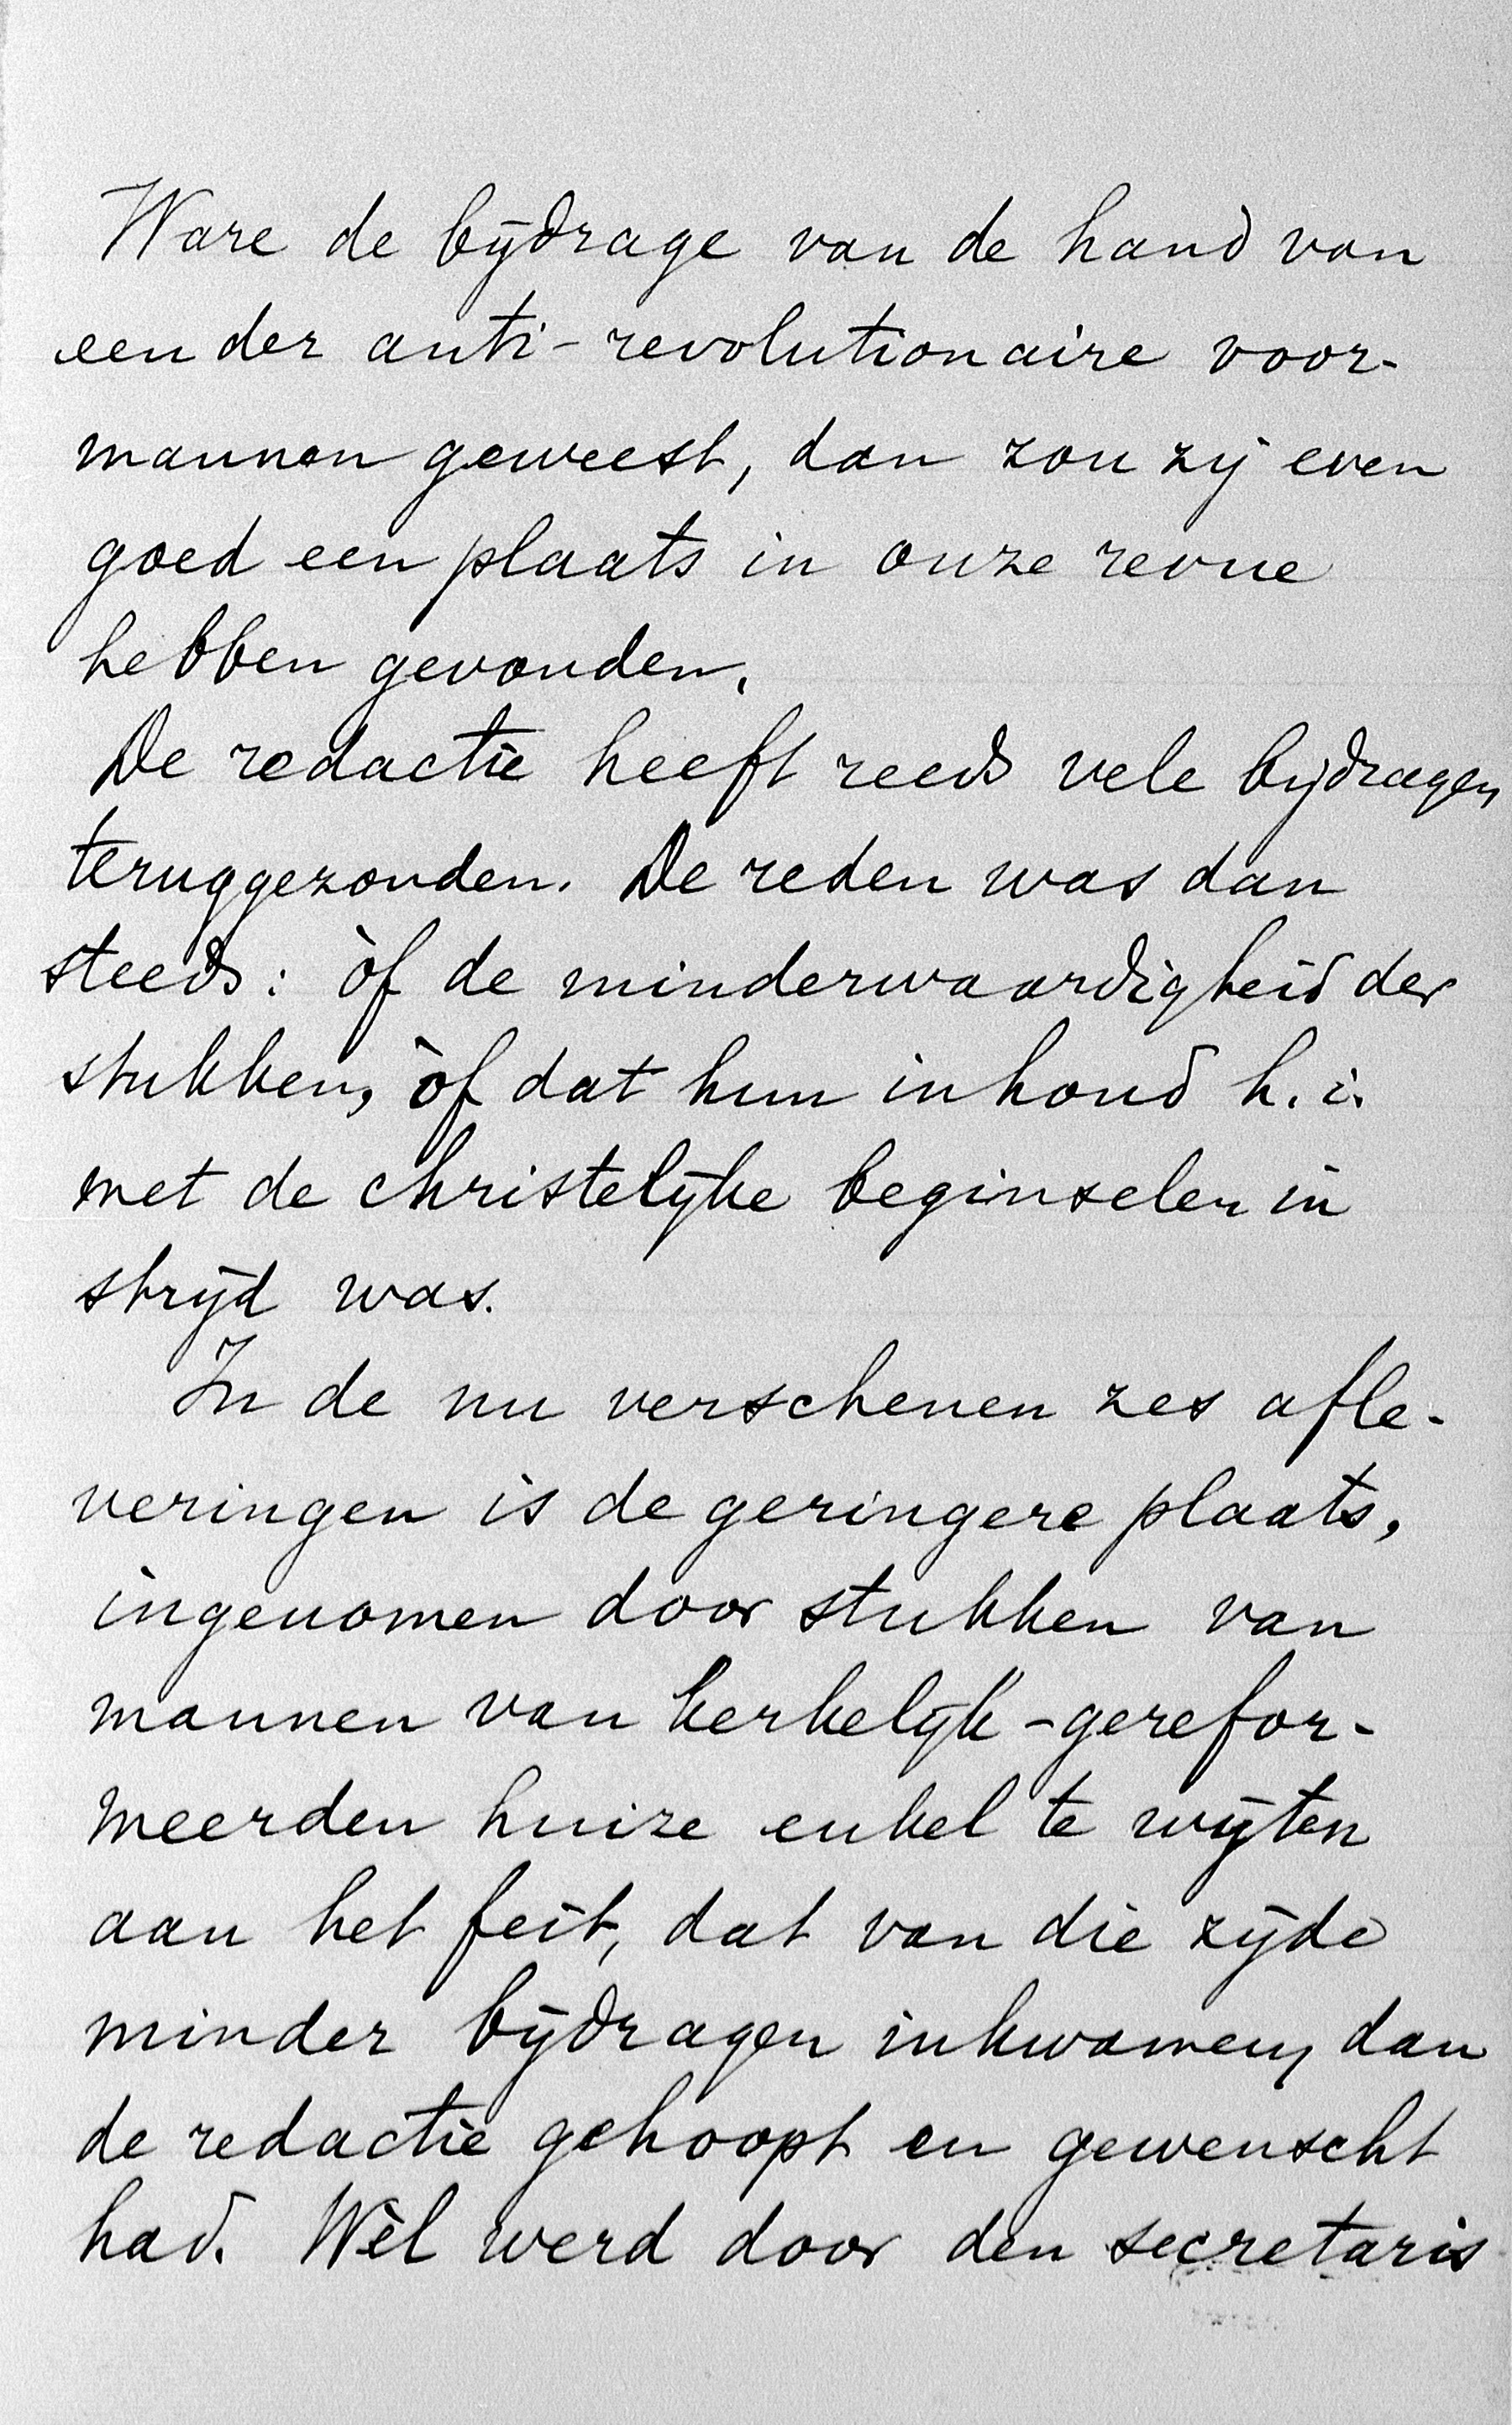 Ware de bijdrage van de hand van
een der anti-revolutionaire voor-
mannen geweest, dan zou zij even
goed een plaats in onze revue
hebben gevonden.
De redactie heeft reeds vele bijdragen
teruggezonden. De reden was dan
steeds: òf de minderwaardigheid der
stukken, òf dat hun inhoud h.i.
met de christelijke beginselen in
strijd was.
In de nu verschenen zes afle-
veringen is de geringere plaats,
ingenomen door stukken van
mannen van kerkelijk-gerefor-
meerden huize enkel te wijten
aan het feit, dat van die zijde
minder bijdragen inkwamen, dan
de redactie gehoopt en gewenscht
had. Wèl werd door den secretaris